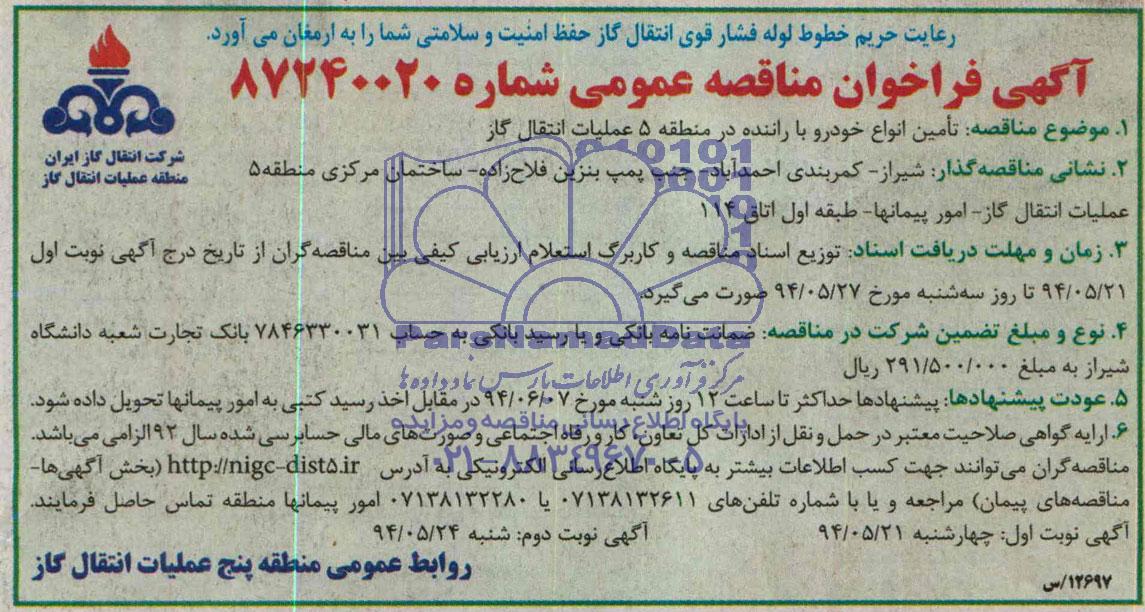 رعایت حریم خطوط لوله فشار قوی انتقال گاز حفظ امنیت و سلامتی شما را به ارمغان می آورد.
آگهی فراخوان مناقصه عمومی شماره ۸۷۲۴۰۰۲۰
شرکت انتقال گاز ایران
منطقه عملیات انتقال گاز
۱. موضوع مناقصه: تأمین انواع خودرو با راننده در منطقه ۵ عملیات انتقال گاز
۲. نشانی مناقصه‌گذار: شیراز- کمربندی احمدآباد- جنب پمپ بنزین فلاح‌زاده- ساختمان مرکزی منطقه۵
عملیات انتقال گاز- امور پیمانها- طبقه اول اتاق ۱۱۴
۳. زمان و مهلت دریافت اسناد: توزیع اسناد مناقصه و کاربرگ استعلام ارزیابی کیفی بین مناقصه‌گران از تاریخ درج آگهی نوبت اول
۹۴/۰۵/۲۱ تا روز سه‌شنبه مورخ ۹۴/۰۵/۲۷ صورت می‌گیرد.
۴. نوع و مبلغ تضمین شرکت در مناقصه: ضمانت نامه بانکی و یا رسید بانکی به حساب ۷۸۴۶۳۳۰۰۳۱ بانک تجارت شعبه دانشگاه
شیراز به مبلغ ۲۹۱/۵۰۰/۰۰۰ ریال
۵. عودت پیشنهادها: پیشنهادها حداکثر تا ساعت ۱۲ روز شنبه مورخ ۹۴/۰۶/۰۷ در مقابل اخذ رسید کتبی به امور پیمانها تحویل داده شود.
۶. ارایه گواهی صلاحیت معتبر در حمل و نقل از ادارات کل تعاون، کار و رفاه اجتماعی و صورت‌های مالی حسابرسی شده سال ۹۲ الزامی می‌باشد.
مناقصه‌گران می‌توانند جهت کسب اطلاعات بیشتر به پایگاه اطلاع‌رسانی الکترونیکی به آدرس http://nigc-dist۵.ir (بخش آگهی‌ها-
مناقصه‌های پیمان) مراجعه و یا با شماره تلفن‌های ۰۷۱۳۸۱۳۲۶۱۱ یا ۰۷۱۳۸۱۳۲۲۸۰ امور پیمانها منطقه تماس حاصل فرمایند.
آگهی نوبت اول: چهارشنبه ۹۴/۰۵/۲۱ آگهی نوبت دوم: شنبه ۹۴/۰۵/۲۴
روابط عمومی منطقه پنج عملیات انتقال گاز
۱۲۶۹۷/س
ParsNamadData
مرکز فرآوری اطلاعات پارس نماد داده‌ها
پایگاه اطلاع رسانی مناقصه و مزایده
۰۲۱-۸۸۳۴۹۶۷۰-۵